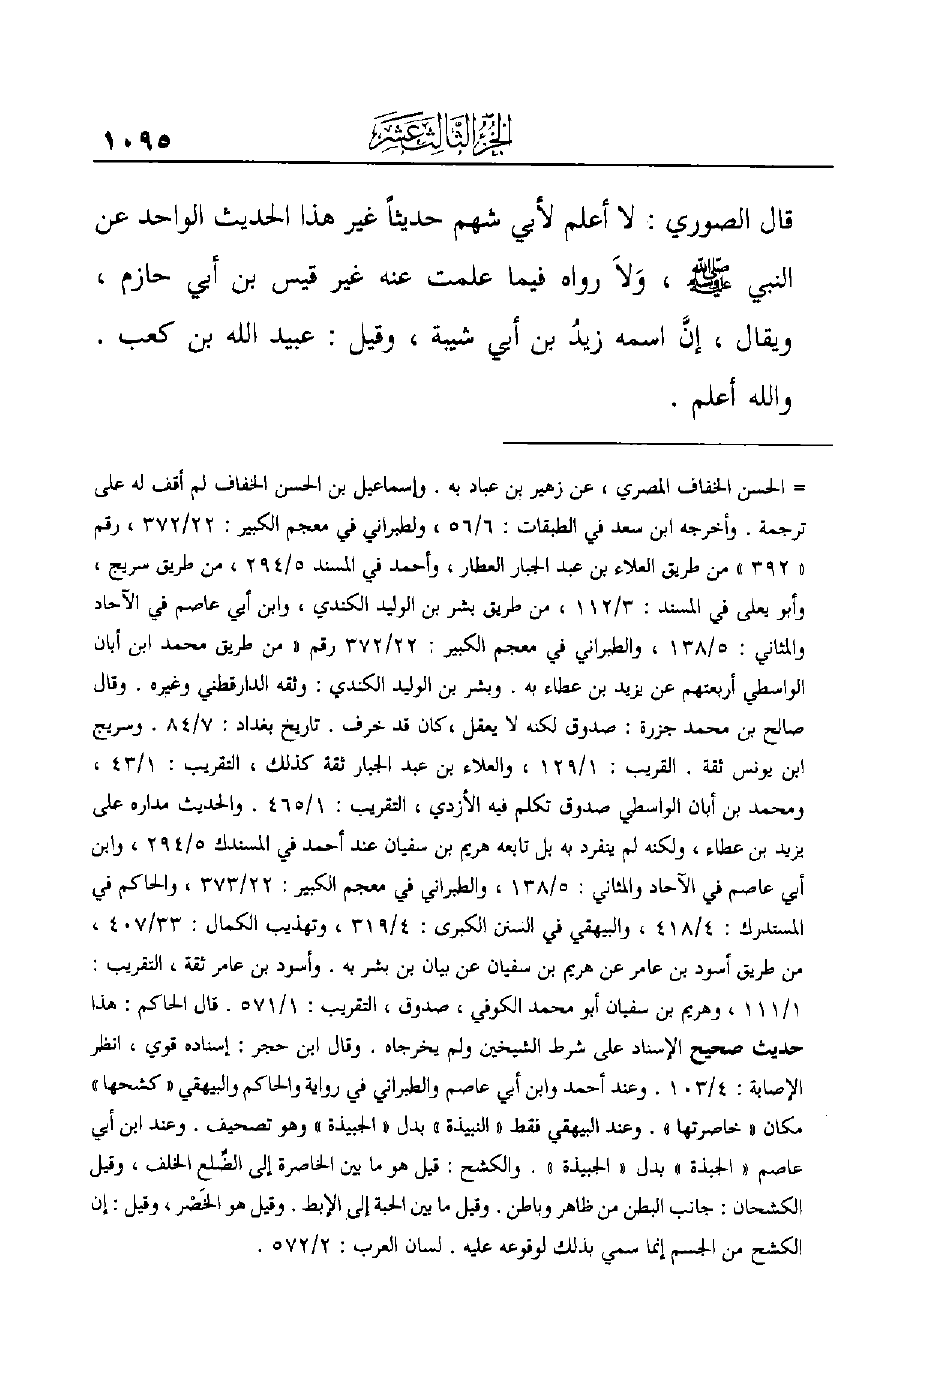 الجزء الثالث عشر
١٠٩٥
قال الصوري : لا أعلم لأبي شهم حديثاً غير هذا الحديث الواحد عن
النبي ﷺ ، وَلاَ رواه فيما علمت عنه غير قيس بن أبي حازم ،
ويقال ، إنَّ اسمه زيدُ بن أبي شيبة ، وقيل : عبيد الله بن كعب .
والله أعلم .
= الحسن الخفاف المصري ، عن زهير بن عباد به . وإسماعيل بن الحسن الخفاف لم أقف له على
ترجمة . وأخرجه ابن سعد في الطبقات : ٥٦/٦ ، ولطبراني في معجم الكبير : ٣٧٢/٢٢ ، رقم
« ٣٩٢ » من طريق العلاء بن عبد الجبار العطار ، وأحمد في المسند ٢٩٤/٥ ، من طريق سريج ،
وأبو يعلى في المسند : ١١٢/٣ ، من طريق بشر بن الوليد الكندي ، وابن أبي عاصم في الآحاد
والمثاني : ١٣٨/٥ ، والطبراني في معجم الكبير : ٣٧٢/٢٢ رقم « من طريق محمد ابن أبان
الواسطي أربعتهم عن يزيد بن عطاء به . وبشر بن الوليد الكندي : وثقه الدارقطني وغيره . وقال
صالح بن محمد جزرة : صدوق لكنه لا يعقل ، كان قد خرف . تاريخ بغداد : ٨٤/٧ . وسريج
ابن يونس ثقة . القريب : ١٢٩/١ ، والعلاء بن عبد الجبار ثقة كذلك ، التقريب : ٤٣/١ ،
ومحمد بن أبان الواسطي صدوق تكلم فيه الأزدي ، التقريب : ٤٦٥/١ . والحديث مداره على
يزيد بن عطاء ، ولكنه لم ينفرد به بل تابعه هريم بن سفيان عند أحمد في المسندك ٢٩٤/٥ ، وابن
أبي عاصم في الآحاد والمثاني : ١٣٨/٥ ، والطبراني في معجم الكبير : ٣٧٣/٢٢ ، والحاكم في
المستدرك : ٤١٨/٤ ، والبيهقي في السنن الكبرى : ٣١٩/٤ ، وتهذيب الكمال : ٤٠٧/٣٣ ،
من طريق أسود بن عامر عن هريم بن سفيان عن بيان بن بشر به . وأسود بن عامر ثقة ، التقريب :
١١١/١ ، وهريم بن سفيان أبو محمد الكوفي ، صدوق ، التقريب : ٥٧١/١ . قال الحاكم : هذا
حديث صحيح الإسناد على شرط الشيخين ولم يخرجاه . وقال ابن حجر : إسناده قوي ، انظر
الإصابة : ١٠٣/٤ . وعند أحمد وابن أبي عاصم والطبراني في رواية والحاكم والبيهقي « كشحها »
مكان « خاصرتها » . وعند البيهقي فقط « النبيذة » بدل « الجبيذة » وهو تصحيف . وعند ابن أبي
عاصم « الجبذة » بدل « الجبيذة » . والكشح : قيل هو ما بين الخاصرة إلى الضِّلع الخلف ، وقيل
الكشحان : جانب البطن من ظاهر وباطن . وقيل ما بين الحبة إلى الإبط . وقيل هو الخَصْر ، وقيل : إن
الكشح من الجسم إنما سمي بذلك لوقوعه عليه . لسان العرب : ٥٧٢/٢ .